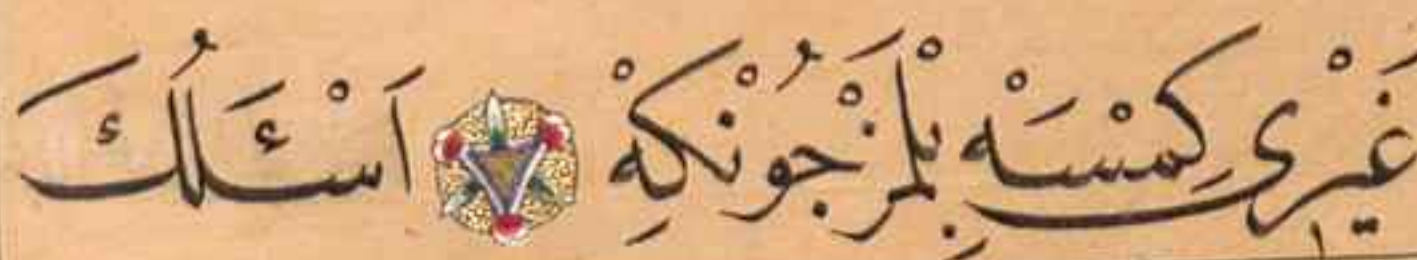 غَيْرِى كِمْسَهْ بِلْمَزْ جُونْكِهْ اَسْئَلُكَ